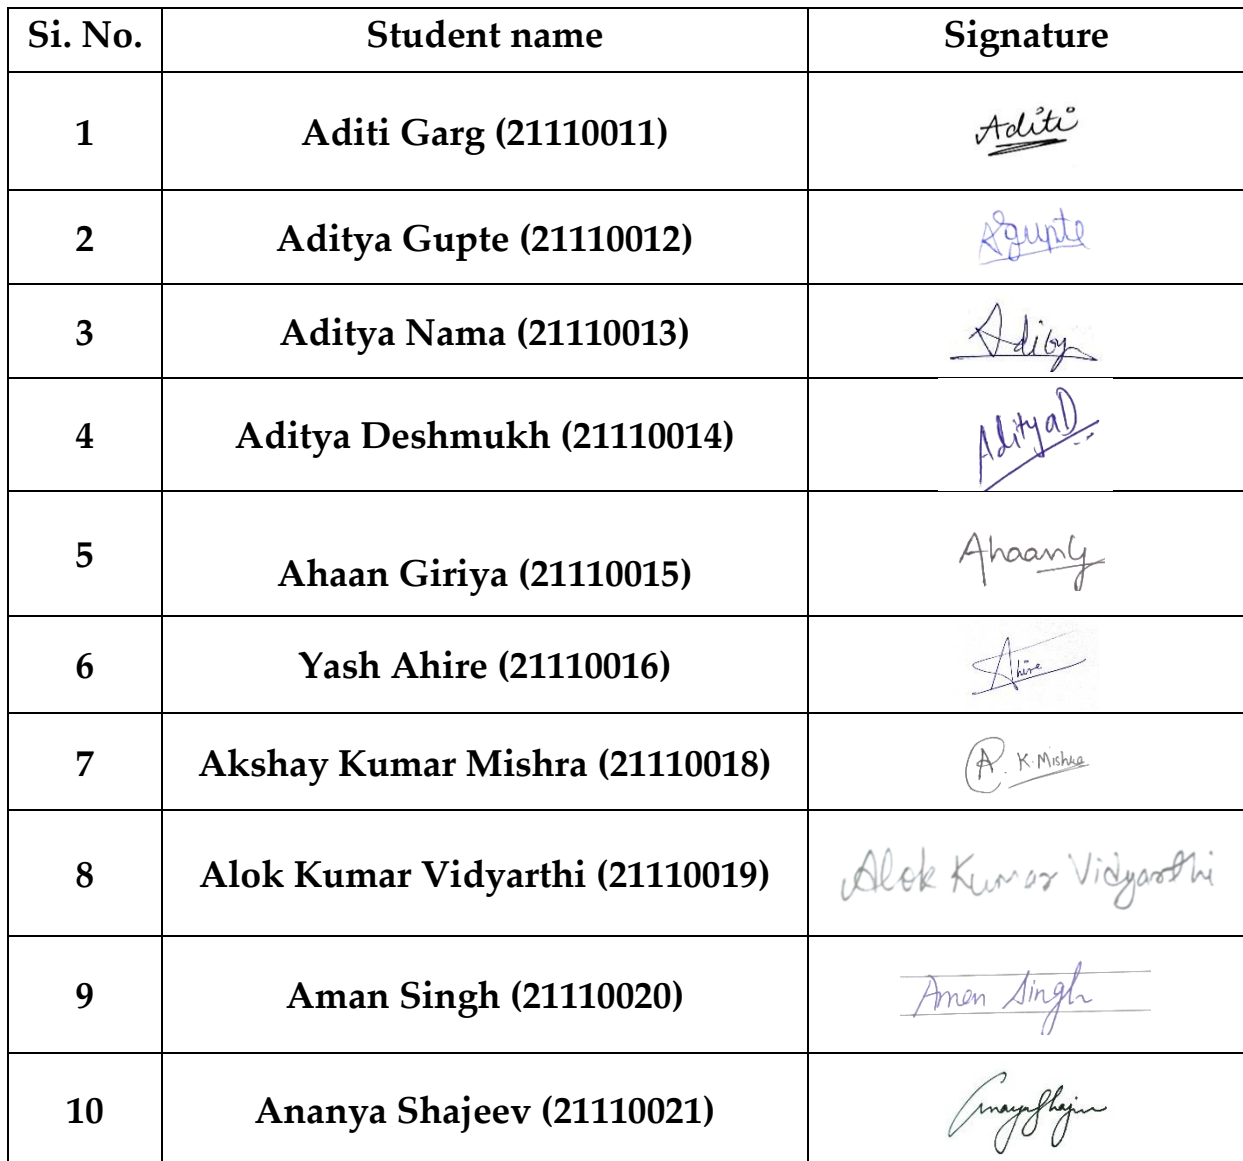 Si. No. Student name Signature
1 Aditi Garg (21110011) Aditi
2 Aditya Gupte (21110012) AGupte
3 Aditya Nama (21110013)
4 Aditya Deshmukh (21110014) AdityaD
5 Ahaan Giriya (21110015) AhaanG
6 Yash Ahire (21110016) Ahire
7 Akshay Kumar Mishra (21110018) A. K. Mishra
8 Alok Kumar Vidyarthi (21110019) Alok Kumar Vidyarthi
9 Aman Singh (21110020) Aman Singh
10 Ananya Shajeev (21110021)